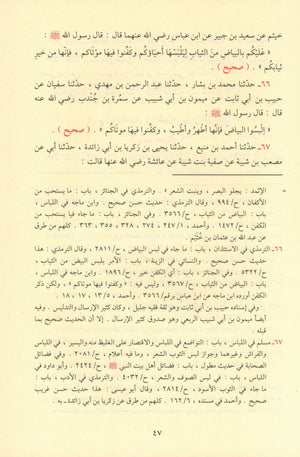 خثيم عن سعيد بن جبير عن ابن عباس رضي الله عنهما قال : قال رسول الله ﷺ :
« عَلَيْكُم بالبياضِ مِنَ الثيابِ لِيَلْبَسْهَا أَحْيَاؤكُم وكَفِّنُوا فيها مَوْتَاكم ، فَإنَّها من خيرِ
ثيابِكُم » . ( صحيح ) .
٦٦ـ حدّثنا محمد بن بشار ، حدّثنا عبد الرحمن بن مهدي ، حدّثنا سفيان عن
حبيب بن أبي ثابت عن ميمون بن أبي شبيب عن سمُرة بن جُندب رضي الله عنه
قال : قال رسول الله ﷺ :
« اِلْبسُوا البياضَ فَإنَّها أَطْهَرُ وأطْيَبُ ، وكفِّنُوا فيها موتَاكُم » . ( صحيح ) .
٦٧ـ حدّثنا أحمد بن منيع ، حدّثنا يحيى بن زكريا بن أبي زائدة ، حدّثنا أبي عن
مصعب بن شيبة عن صفية بنت شيبة عن عائشة رضي الله عنها قالت :
= الإثمد : يجلو البصر ، وينبت الشعر » . والترمذي في الجنائز ، باب : ما يستحب من
الأكفان ، ح/٩٩٤ ، وقال الترمذي : حديث حسن صحيح . وابن ماجه في اللباس ،
باب : البياض من الثياب ، ح/٣٥٦٦ . وفي الجنائز ، باب : ما جاء فيما يستحب من
الكفن ، ح/١٤٧٢ . وأحمد ، ١/٢٤٧ ، ٢٧٤ ، ٣٢٨ ، ٣٥٥ ، ٣٦٣ . كلهم من طرق
عن عبد الله بن عثمان بن خُثَيْم .
٦٦ـ الترمذي في الاستئذان ، باب : ما جاء في لبس البياض ، ح/٢٨١١ ، وقال الترمذي : هذا
حديث حسن صحيح . والنسائي في الزينة ، باب : الأمر بلبس البيض من الثياب ،
ح/٥٣٢٢ . وفي الجنائز ، باب : أي الكفن خير ، ح/١٨٩٦ . وابن ماجه في
اللباس ، باب : البياض من الثياب ، ح/٣٥٦٧ ، وليس فيه « وكفنوا فيها موتاكم » ، ولكن ذكر
الكفن أورده ابن ماجه عن ابن عباس برقم/٣٥٦٦ . وأحمد ، ٥/١٣ ، ١٧ ، ١٨ .
وفي إسناده حبيب بن أبي ثابت وهو ثقة فقيه جليل ، وكان كثير الإرسال والتدليس . وفيه
أيضًا ميمون بن أبي شبيب الربعي وهو صدوق كثير الإرسال . إلا أن الحديث صحيح بما
قبله .
٦٧ـ مسلم في اللباس ، باب : التواضع في اللباس والاقتصار على الغليظ منه واليسير ، في اللباس
والفراش وغيرهما وجواز لبس الثوب الشعر ، وما فيه أعلام ، ح/٢٠٨١ . وفي فضائل
الصحابة في حديث مطول ، باب : فضائل أهل بيت النبي ﷺ ، ح/٢٤٢٤ . وأبو داود في
اللباس ، باب : في لبس الصوف والشعر ، ح/٤٠٣٢ . والترمذي في الأدب ، باب :
ما جاء في الثوب الأسود ، ح/٢٨١٤ ، وقال أبو عيسى : هذا حديث حسن غريب
صحيح . وأحمد في مسنده ، ٦/١٦٢ . كلهم من طرق عن زكريا بن أبي زائدة ـ به .
٤٧